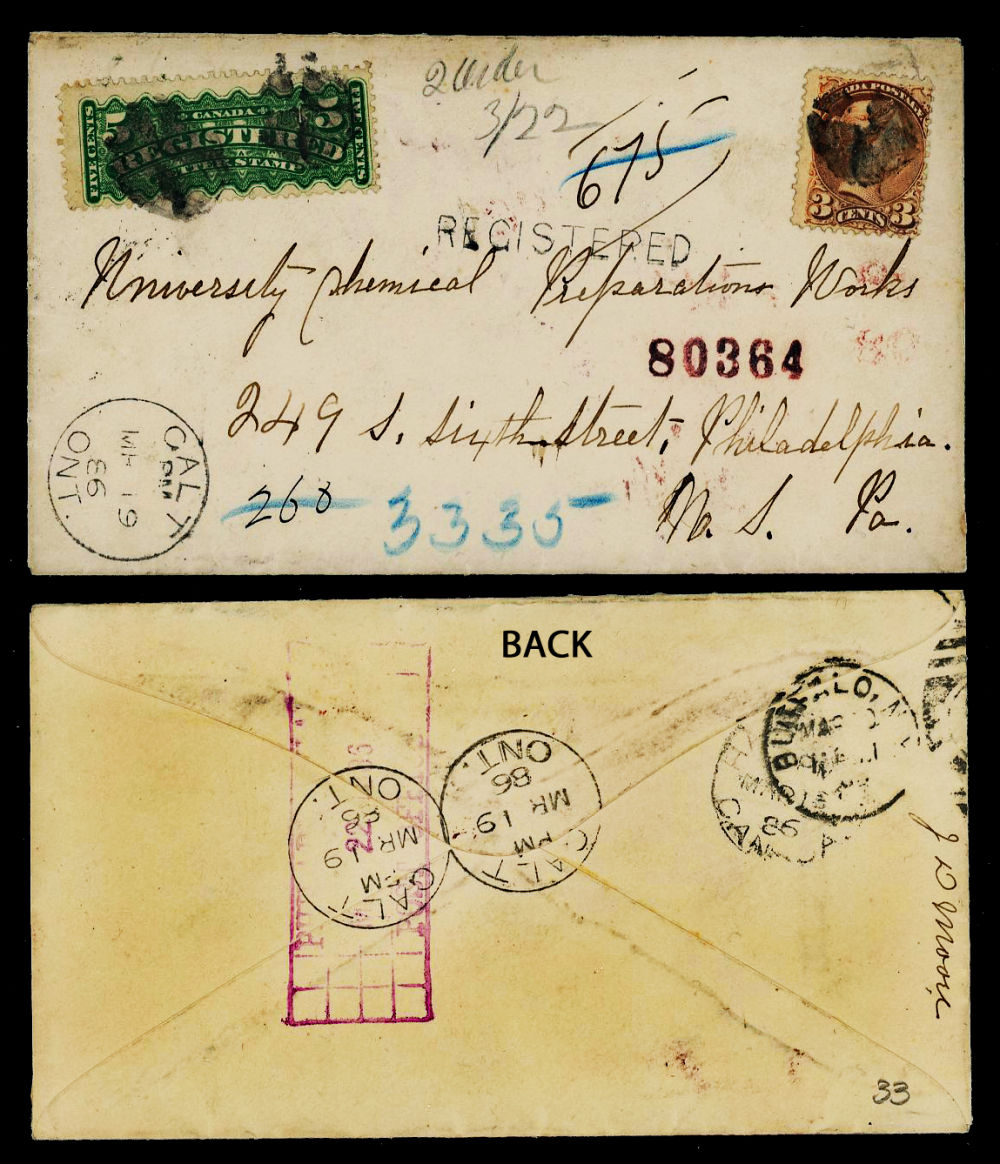 5 CANADA 5
FIVE CENTS
REGISTERED
LETTER STAMP
FIVE CENTS
2 Order
3/22
675
CANADA POSTAGE
3 CENTS 3
REGISTERED
University Chemical Preparations Works
80364
249 S. Sixth Street, Philadelphia.
268
3335
U. S. Pa.
GALT
PM
MR 19
86
ONT.
BACK
GALT
PM
MR 19
86
ONT.
GALT
PM
MR 19
86
ONT.
22
BUFFALO, N.Y.
MAR
MAR 19
86
CANADA
J D Moore
33